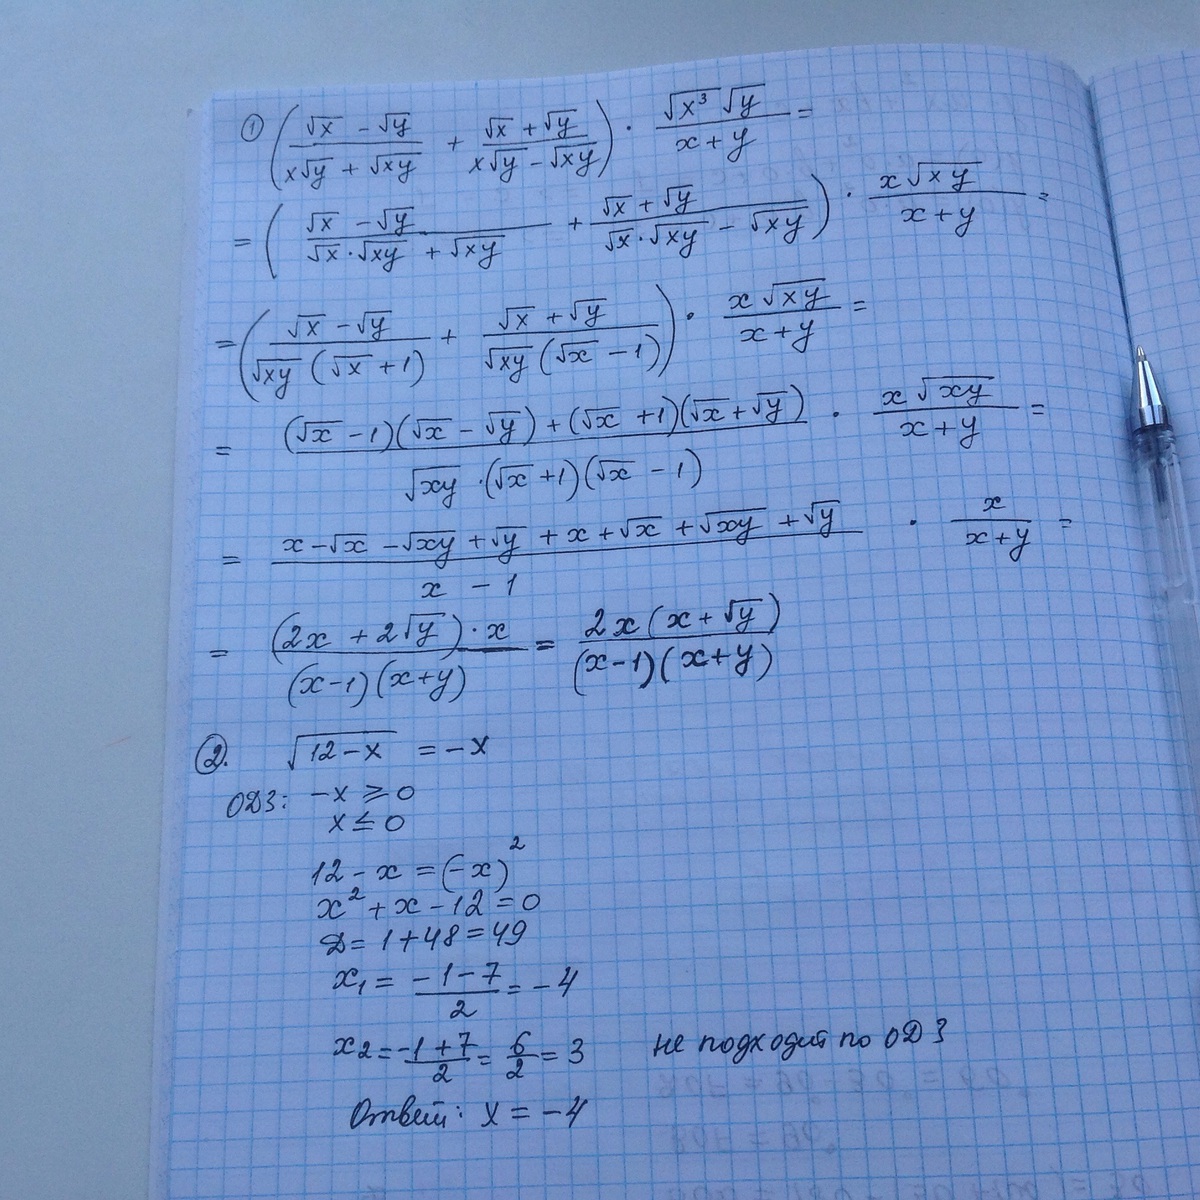 ① ((√x - √y)/(x√y + √xy) + (√x + √y)/(x√y - √xy)) · (√x³ √y)/(x+y) =
= ((√x - √y)/(√x·√xy + √xy) + (√x + √y)/(√x·√xy - √xy)) · (x√xy)/(x+y) =
= ((√x - √y)/(√xy (√x + 1)) + (√x + √y)/(√xy (√x - 1))) · (x√xy)/(x+y) =
= ((√x - 1)(√x - √y) + (√x + 1)(√x + √y))/(√xy · (√x + 1)(√x - 1)) · (x√xy)/(x+y) =
= (x - √x - √xy + √y + x + √x + √xy + √y)/(x - 1) · x/(x+y) =
= ((2x + 2√y)·x)/((x-1)(x+y)) = (2x(x + √y))/((x-1)(x+y))
②. √(12-x) = -x
ОДЗ: -x ≥ 0
x ≤ 0
12 - x = (-x)²
x² + x - 12 = 0
D = 1 + 48 = 49
x₁ = (-1-7)/2 = -4
x₂ = (-1+7)/2 = 6/2 = 3 не подходит по ОДЗ
Ответ: x = -4